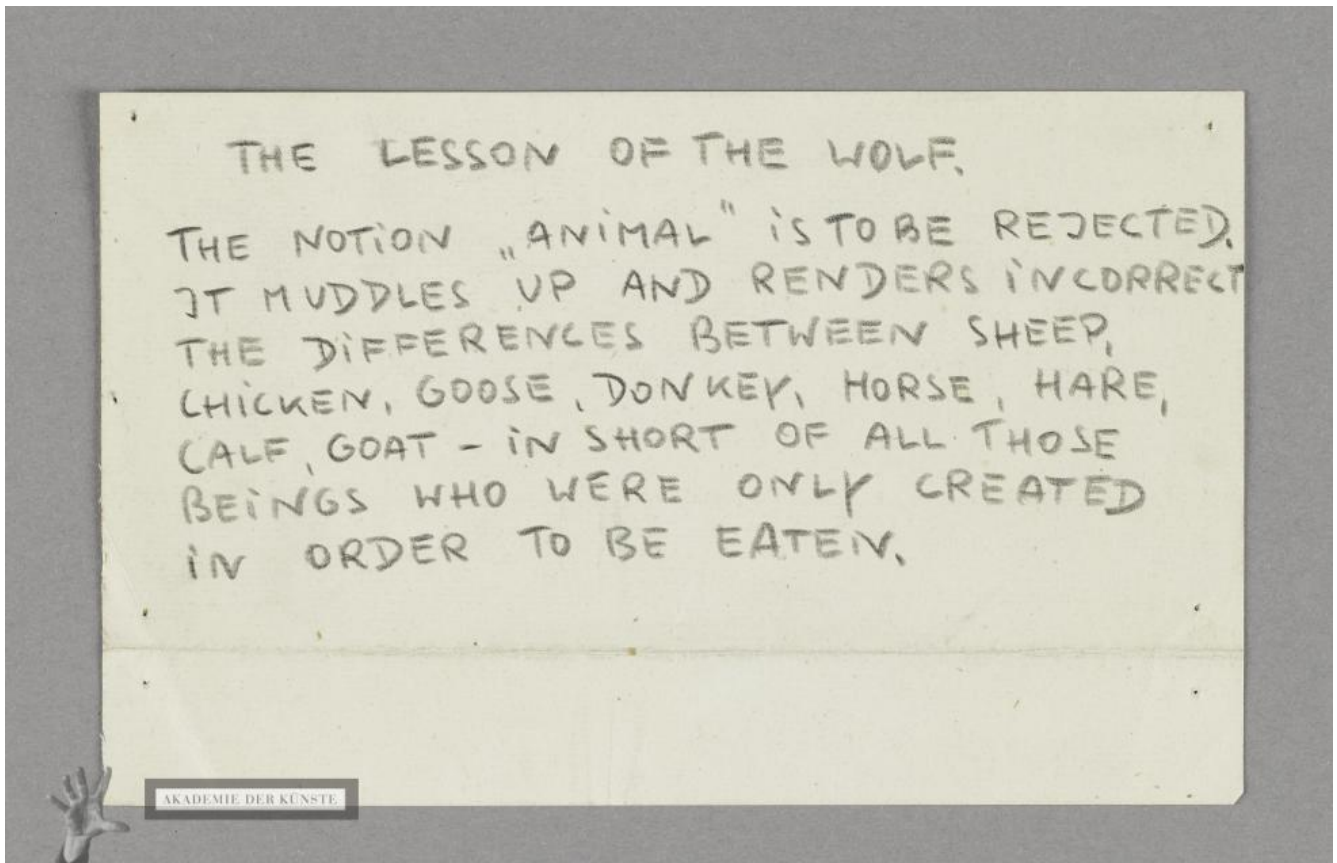 THE LESSON OF THE WOLF.
THE NOTION „ANIMAL" IS TO BE REJECTED.
IT MUDDLES UP AND RENDERS INCORRECT
THE DIFFERENCES BETWEEN SHEEP,
CHICKEN, GOOSE, DONKEY, HORSE, HARE,
CALF, GOAT – IN SHORT OF ALL THOSE
BEINGS WHO WERE ONLY CREATED
IN ORDER TO BE EATEN.
AKADEMIE DER KÜNSTE